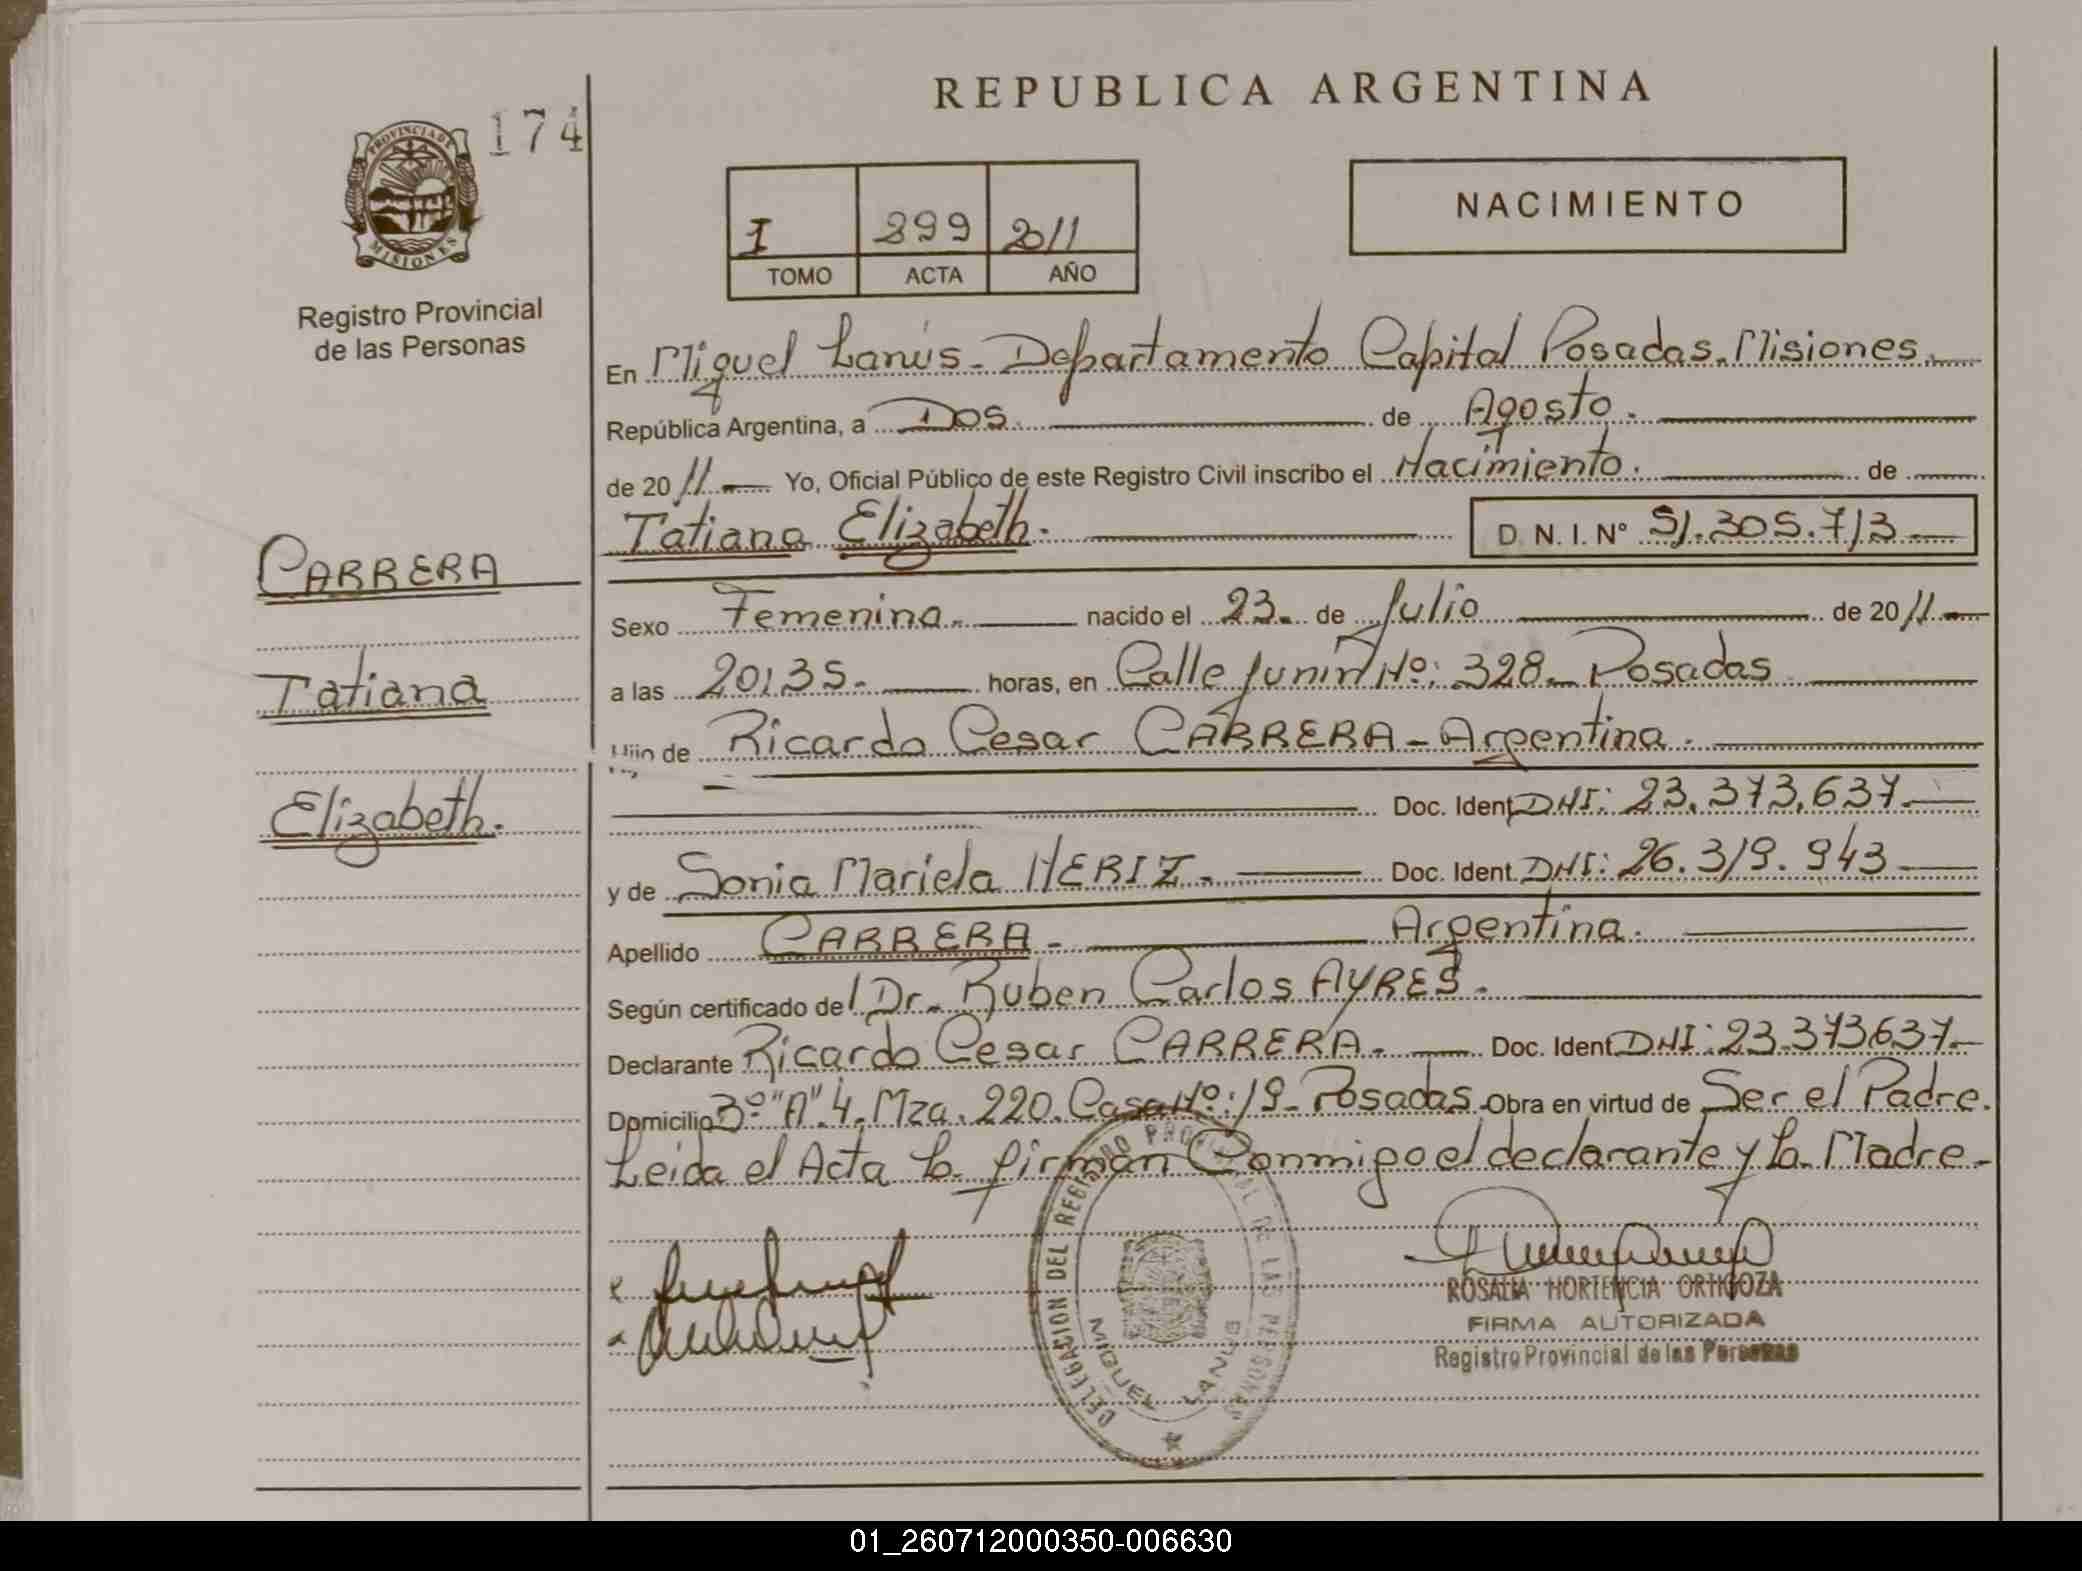 REPUBLICA ARGENTINA
174
PROVINCIA DE
MISIONES
Registro Provincial
de las Personas
I 899 2011
TOMO ACTA AÑO
NACIMIENTO
En Miguel Lanús - Departamento Capital Posadas. Misiones.
República Argentina, a Dos. de Agosto.
de 2011 Yo, Oficial Público de este Registro Civil inscribo el Nacimiento. de
Tatiana Elizabeth. D. N. I. Nº 51.305.713
CARRERA
Tatiana
Elizabeth.
Sexo Femenina. nacido el 23. de Julio de 2011
a las 20:35. horas, en Calle Junin Nº: 328. Posadas
Hijo de Ricardo Cesar CARRERA - Argentina.
Doc. Ident. DNI: 23.373.637.
y de Sonia Mariela HERIZ. Doc. Ident. DNI: 26.319.943
Apellido CARRERA - Argentina.
Según certificado del Dr. Ruben Carlos AYRES.
Declarante Ricardo Cesar CARRERA. Doc. Ident. DNI: 23.373637.
Domicilio 3º "A". 4. Mza. 220. Casa Nº: 19 - Posadas. Obra en virtud de Ser el Padre.
Leida el Acta la firman Conmigo el declarante y la Madre.
DELEGACION DEL REGISTRO PROVINCIAL DE LAS PERSONAS
MIGUEL LANUS
ROSALIA HORTENCIA ORTIGOZA
FIRMA AUTORIZADA
Registro Provincial de las Personas
01_260712000350-006630